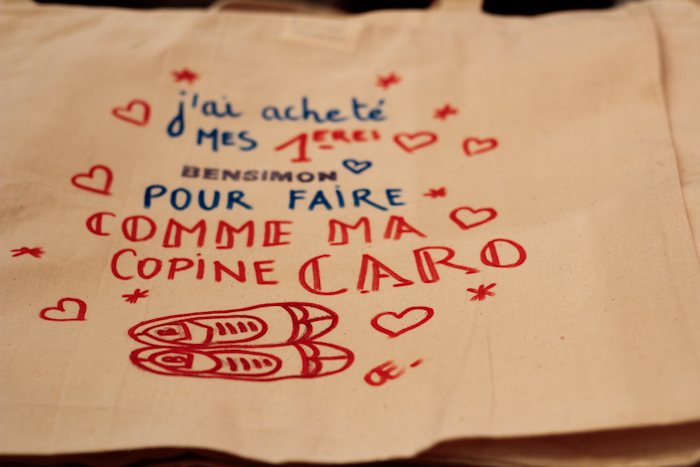 j'ai acheté
MES 1ERES
BENSIMON
POUR FAIRE
COMME MA
COPINE CARO
Œ.